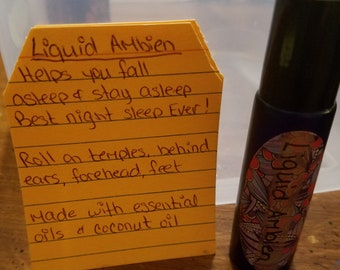 Liquid Ambien
Helps you fall
asleep & stay asleep
Best night sleep Ever!
Roll on temples, behind
ears, forehead, feet
Made with essential
oils & coconut oil
Liquid Ambien